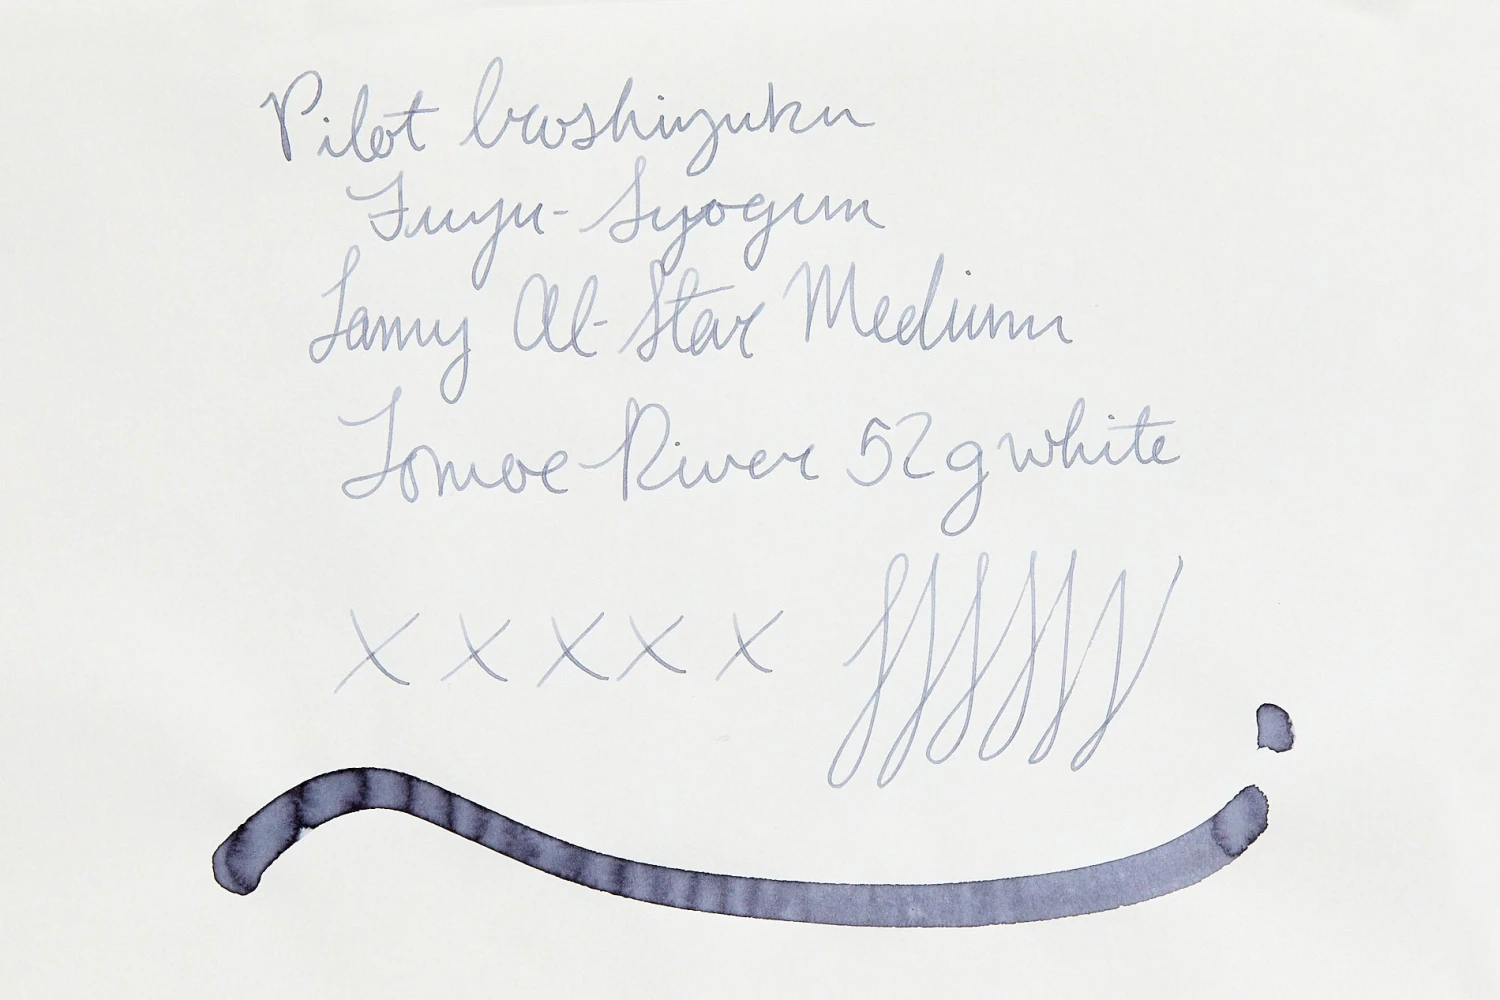 Pilot Iroshizuku
Fuyu-Syogun
Lamy Al-Star Medium
Tomoe River 52g white
x x x x x